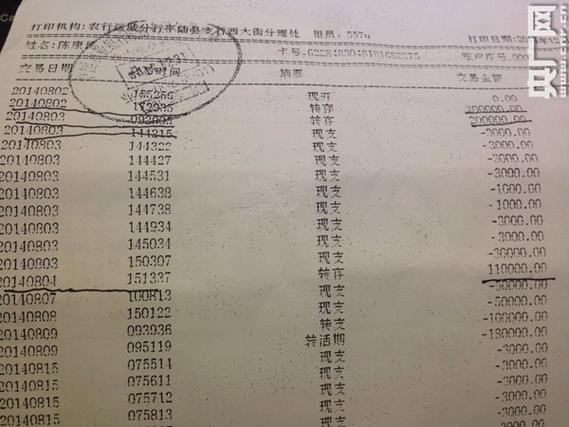 打印机构:农行运城分行平陆县支行西大街分理处 柜员:557u 打印日期:
姓名:陈康民 卡号:6228480481816 账户序号:000
交易日期 时间 摘要 交易金额
20140802 155256 现开 0.00
20140802 172935 转存 200000.00
20140803 转存 200000.00
20140803 144215 现支 -3000.00
20140803 144322 现支 -3000.00
20140803 144427 现支 -3000.00
20140803 144531 现支 -3000.00
20140803 144638 现支 -1000.00
20140803 144738 现支 -1000.00
20140803 144934 现支 -3000.00
20140803 145034 现支 -3000.00
20140803 150307 现支
20140804 151337 转存 110000.00
20140807 100813 现支 -50000.00
20140808 150122 现支 -50000.00
20140809 093936 转支 -100000.00
20140809 095119 转活期 -180000.00
20140815 075514 现支 -3000.00
20140815 075611 现支 -3000.00
20140815 075712 现支 -3000.00
20140815 075813 现支 -3000.00
现支 -3000.00
央广网